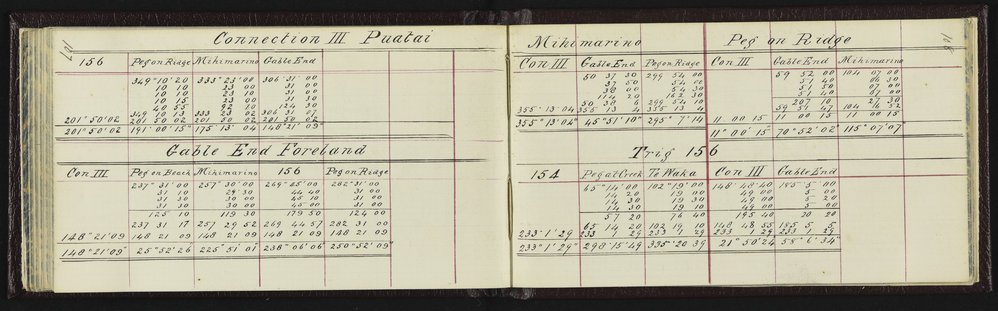 Connection III Puatai
156 Peg on Ridge Mihimarino Gable End
349° 10' 20 333° 23' 00 306° 31' 00
10 10 23 00 31 00
10 10 23 10 31 30
10 15 23 00 31 30
40 55 92 10 124 30
349 10 13 333 23 02 306 31 07
201° 50' 02 201 50 02 201 50 02 201 50 02
201° 50' 02 191° 00' 15" 175° 13' 04 148° 21' 09"
Gable End Foreland
Con III Peg on Beach Mihimarino 156 Peg on Ridge
237° 31' 00 257° 30' 00 269° 45' 00 282° 31' 00
31 10 29 30 44 40 31 00
31 30 30 00 45 10 31 00
31 30 30 00 45 00 31 00
125 10 119 30 179 50 124 00
237 31 17 257 29 52 269 44 57 282 31 00
148° 21' 09 148 21 09 148 21 09 148 21 09 148 21 09
148° 21' 09 25° 52' 26 225° 51' 01 238° 06' 06 250° 52' 09
Mihimarino
Con III Gable End Peg on Ridge
50 37 30 299 54 00
37 50 54 00
38 00 54 30
114 20 162 30
50 38 6 299 54 10
355° 13' 04 355 13 4 355 13 4
355° 13' 04" 45° 51' 10" 295° 7' 14
Peg on Ridge
Con III Gable End Mihimarino
59 52 00 104 07 00
51 40 06 30
51 50 07 00
51 40 07 00
207 10 27 30
59 51 47 104 6 52
11 00 15 11 00 15 11 00 15
11° 00' 15 70° 52' 02 115° 07' 07
Trig 156
154 Peg at Creek Te Waka Con III Gable End
65° 14' 00 102° 19' 00 148° 48' 40 185° 5' 00
14 20 19 00 49 00 5 00
14 30 19 30 49 00 5 20
14 30 19 10 49 00 5 00
57 20 76 40 195 40 20 20
65 14 20 102 19 10 148 48 55 185 5 5
233° 1' 29 233 1 29 233 1 29 233 1 29 233 1 29
233° 1' 29" 298° 15' 49 335° 20' 39 21° 50' 24 58° 6' 34"